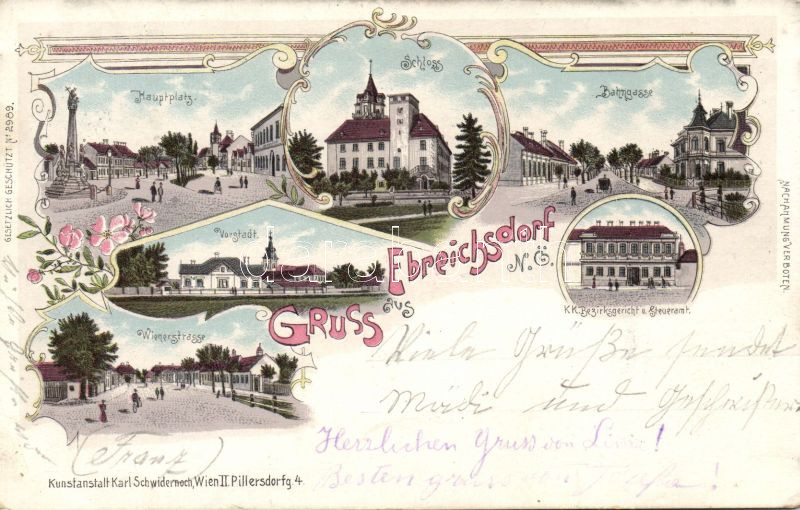 Hauptplatz.
Schloss
Bahngasse
Vorstadt.
Wienerstrasse
K.K. Bezirksgericht u. Steueramt.
Gruss aus Ebreichsdorf
N.Ö.
GESETZLICH GESCHÜTZT Nº 2989.
NACHAHMUNG VERBOTEN.
Viele Grüße sendet
und Geschwister
(Franz)
Herzlichen Gruss von
Besten gruss von
Kunstanstalt Karl Schwidernoch, Wien II. Pillersdorfg. 4.